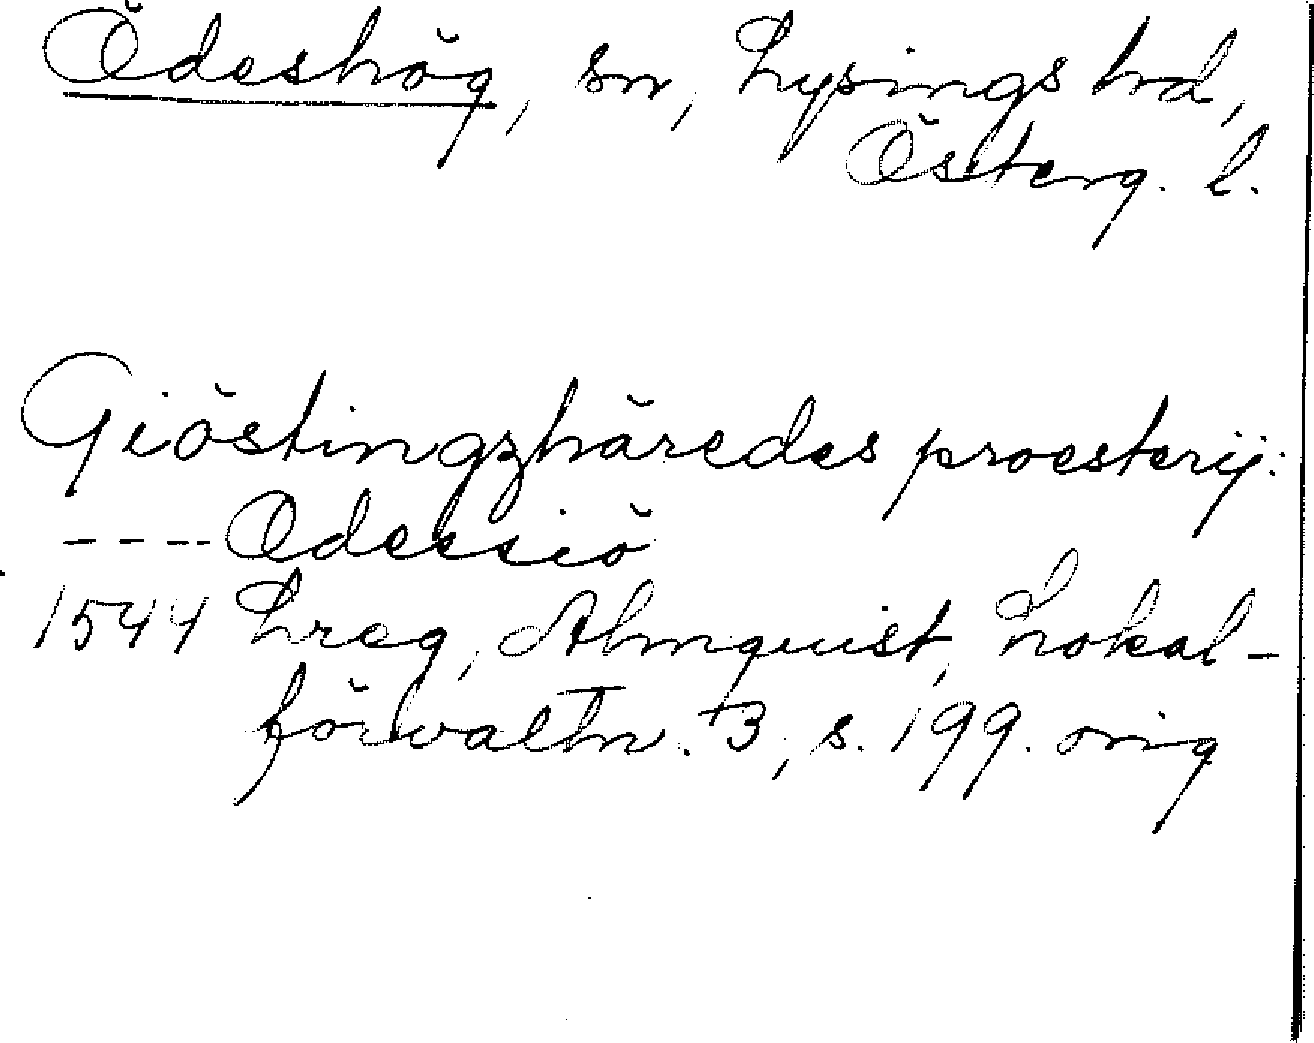 Ödeshög, sn, Lysings hd,
Österg. l.
Giöstingzhäredes proesterij:
---- Odessiö
1544 Lreg, Almquist, Lokal-
förvaltn. 3, s. 199. orig